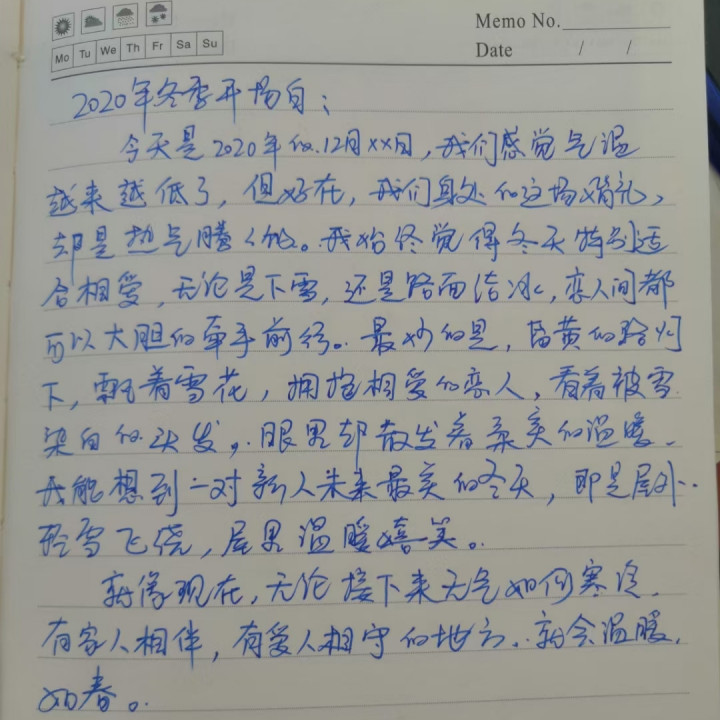 Memo No.
Mo Tu We Th Fr Sa Su
Date / /
2020年冬季开场白:
今天是2020年的.12月xx日,我们感觉气温
越来越低了,但好在,我们身处的这场婚礼,
却是热气腾腾。我始终觉得冬天特别适
合相爱,无论是下雪,还是路面结冰,恋人间都
可以大胆的牵手前行。最妙的是,昏黄的路灯
下,飘着雪花,拥抱相爱的恋人,看着被雪
染白的头发,眼里却散发着柔美的温暖.
我能想到一对新人未来最美的冬天,即是屋外..
轻雪飞绕,屋里温暖嬉笑。
就像现在,无论接下来天气如何寒冷.
有家人相伴,有爱人相守的地方.就会温暖.
如春。